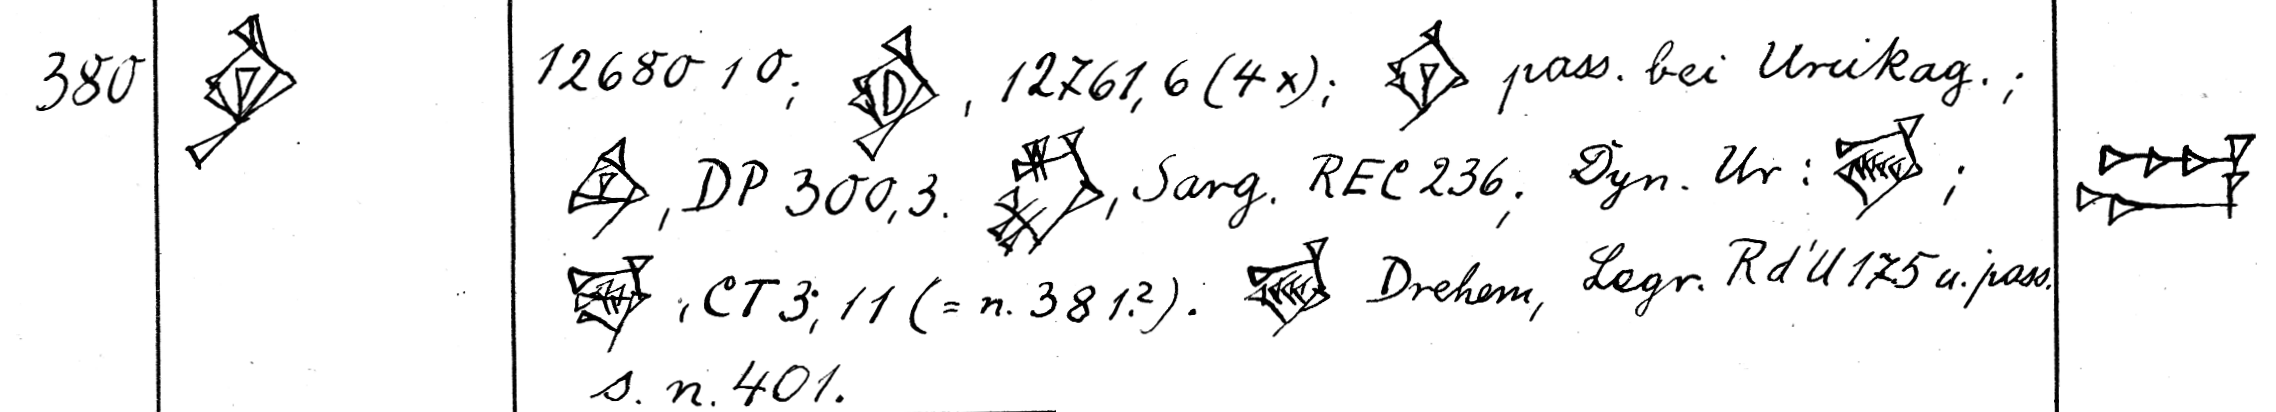 380 12680 10; , 12761, 6 (4 x); pass. bei Urukag.;
, DP 300, 3. , Sarg. REC 236; Dyn. Ur: ;
, CT 3; 11 (= n. 381?). Drehem, Legr. Rd'U 175 u. pass.
s. n. 401.